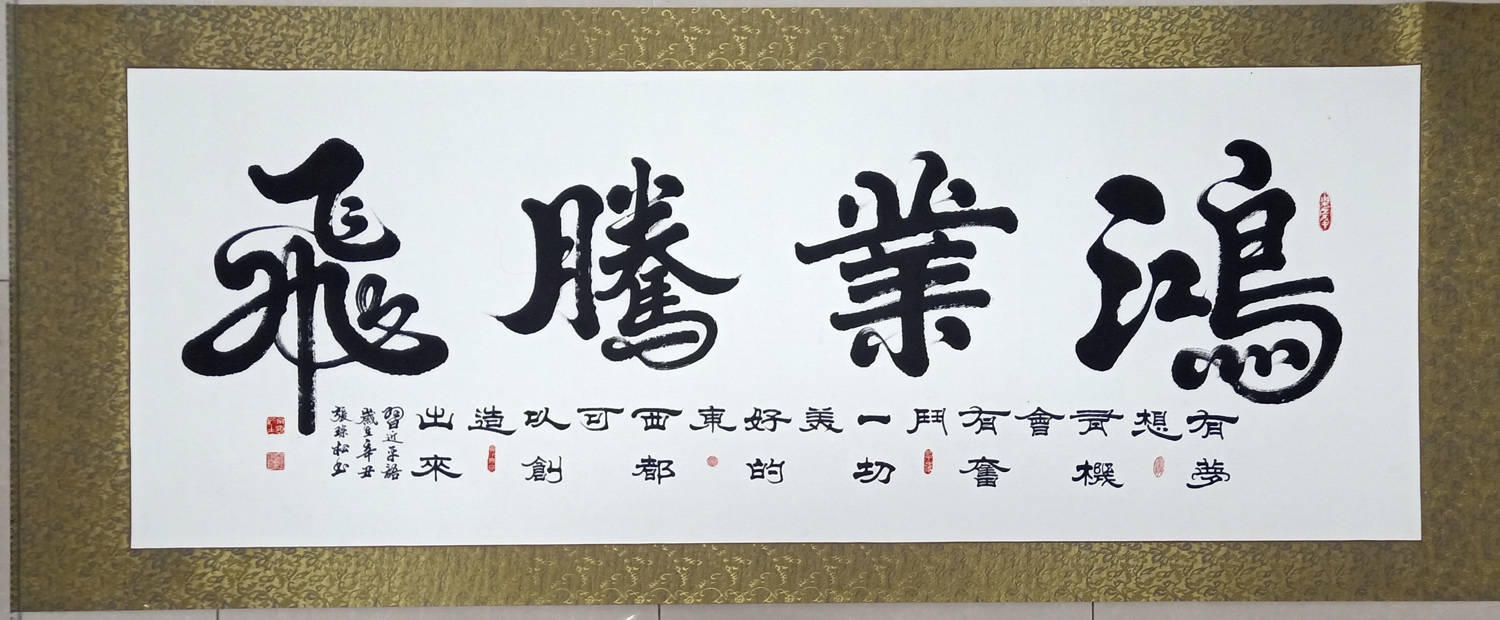 鴻業騰飛
有夢
想
有機
會
有奮
鬥
一切
美
好的
東
西都
可
以創
造
出來
習近平語
歲在辛丑
張松书